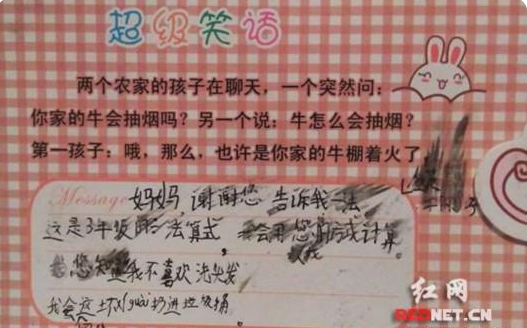 超级笑话
两个农家的孩子在聊天，一个突然问：
你家的牛会抽烟吗？另一个说：牛怎么会抽烟？
第一孩子：哦，那么，也许是你家的牛棚着火了
Message 妈妈 谢谢您 告诉我 法
这是3年级 法算式， 会用您 方式计算。
您知 我不喜欢洗头发
我会变坏 guai扔进垃圾桶
红网
REDNET.CN